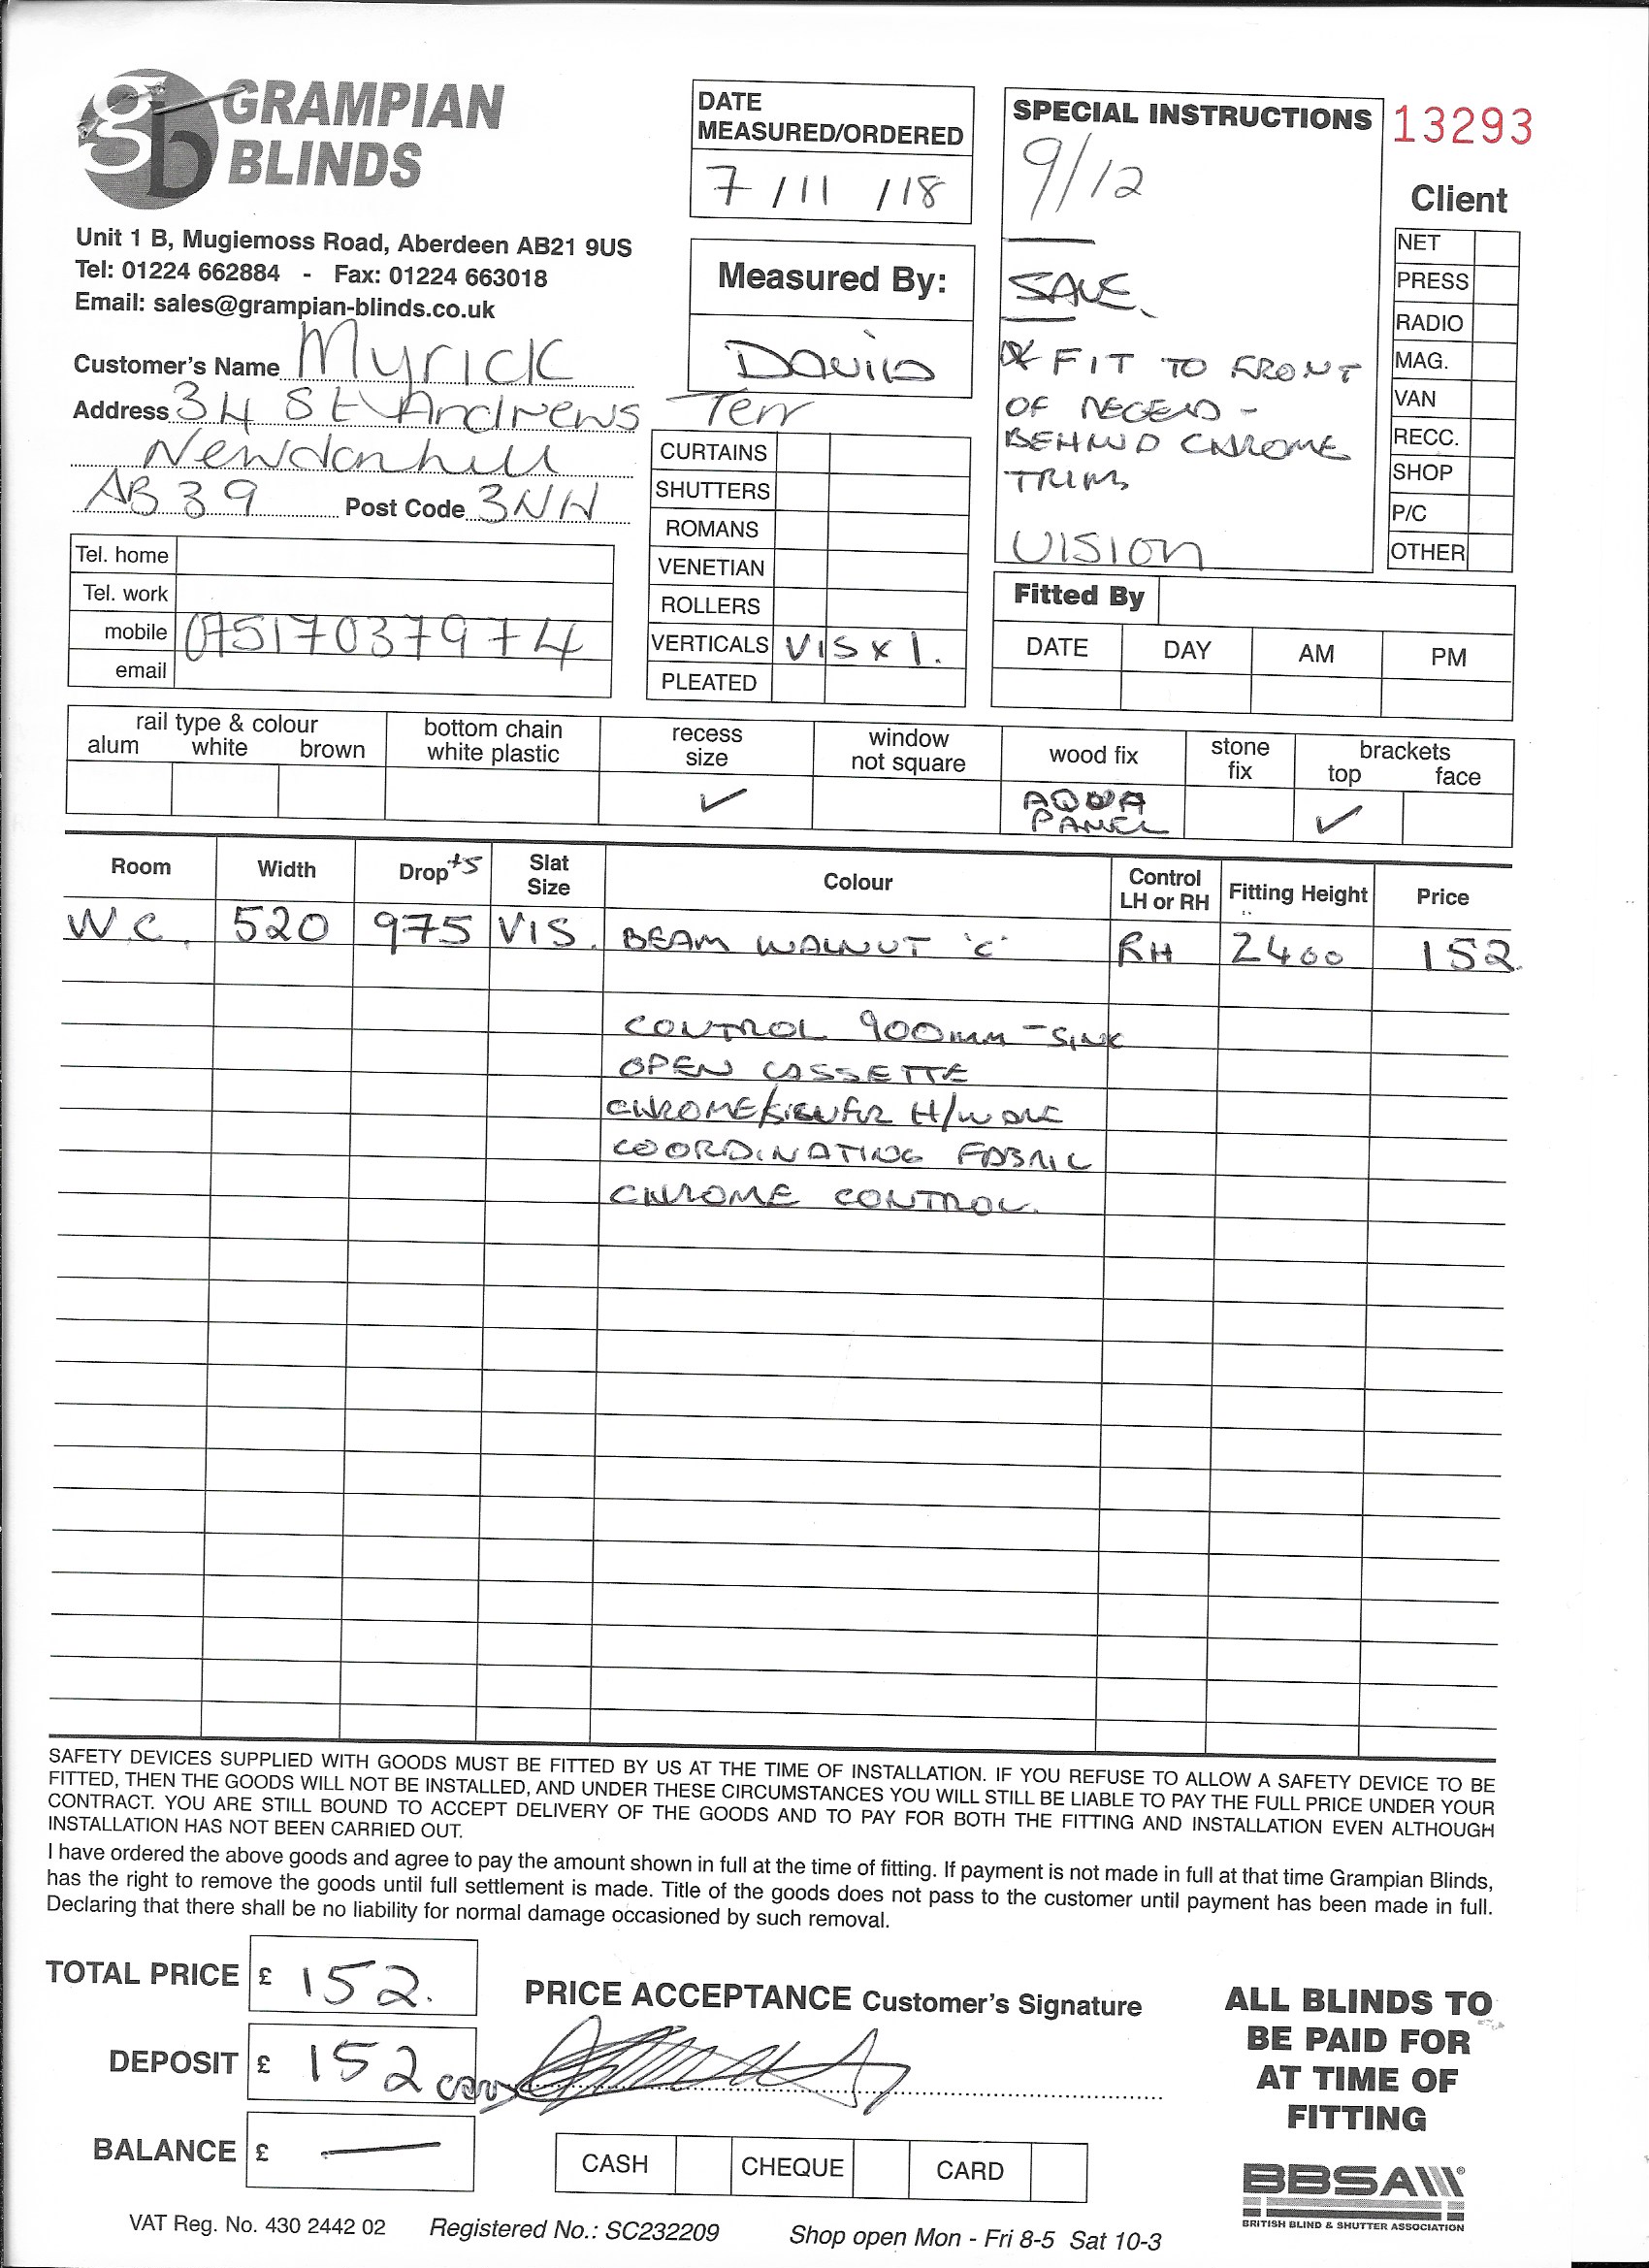 gb GRAMPIAN
BLINDS
Unit 1 B, Mugiemoss Road, Aberdeen AB21 9US
Tel: 01224 662884 - Fax: 01224 663018
Email: sales@grampian-blinds.co.uk
Customer's Name Myrick
Address 34 St Andrews Terr
Newtonhill
AB39 Post Code 3NH
Tel. home
Tel. work
mobile 07517037974
email
DATE
MEASURED/ORDERED
7/11/18
Measured By:
David
CURTAINS
SHUTTERS
ROMANS
VENETIAN
ROLLERS
VERTICALS VIS x 1.
PLEATED
SPECIAL INSTRUCTIONS
9/12
SALE.
* FIT TO FRONT
OF RECESS -
BEHIND CHROME
TRIM
VISION
13293
Client
NET
PRESS
RADIO
MAG.
VAN
RECC.
SHOP
P/C
OTHER
Fitted By
DATE DAY AM PM
rail type & colour
alum white brown
bottom chain
white plastic
recess
size
✓
window
not square
wood fix
AQUA
PANEL
stone
fix
brackets
top face
✓
Room Width Drop +5 Slat Size Colour Control LH or RH Fitting Height Price
W.C. 520 975 VIS. BEAM WALNUT 'C' RH 2400 152.
CONTROL 900mm - SINK
OPEN CASSETTE
CHROME/SILVER H/WARE
COORDINATING FABRIC
CHROME CONTROL.
SAFETY DEVICES SUPPLIED WITH GOODS MUST BE FITTED BY US AT THE TIME OF INSTALLATION. IF YOU REFUSE TO ALLOW A SAFETY DEVICE TO BE
FITTED, THEN THE GOODS WILL NOT BE INSTALLED, AND UNDER THESE CIRCUMSTANCES YOU WILL STILL BE LIABLE TO PAY THE FULL PRICE UNDER YOUR
CONTRACT. YOU ARE STILL BOUND TO ACCEPT DELIVERY OF THE GOODS AND TO PAY FOR BOTH THE FITTING AND INSTALLATION EVEN ALTHOUGH
INSTALLATION HAS NOT BEEN CARRIED OUT.
I have ordered the above goods and agree to pay the amount shown in full at the time of fitting. If payment is not made in full at that time Grampian Blinds,
has the right to remove the goods until full settlement is made. Title of the goods does not pass to the customer until payment has been made in full.
Declaring that there shall be no liability for normal damage occasioned by such removal.
TOTAL PRICE £ 152.
DEPOSIT £ 152 CARD
BALANCE £ —
PRICE ACCEPTANCE Customer's Signature
CASH CHEQUE CARD
ALL BLINDS TO
BE PAID FOR
AT TIME OF
FITTING
BBSA
BRITISH BLIND & SHUTTER ASSOCIATION
VAT Reg. No. 430 2442 02 Registered No.: SC232209 Shop open Mon - Fri 8-5 Sat 10-3